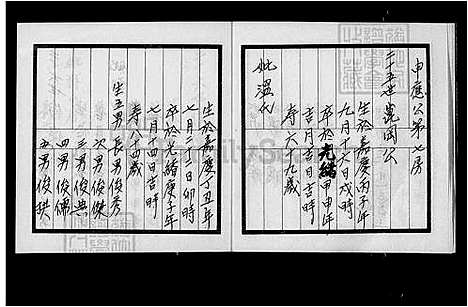 申應公第七房
二十五世崑岡公
生於嘉慶丙子年
九月十六日戌時
卒於光緒甲申年
吉月吉日吉時
寿六十九歲
妣溫氏
生於嘉慶丁丑年
七月二十二日卯時
卒於光緒庚子年
七月十四日吉時
寿八十四歲
生五男長男俊秀
次男俊傑
三男俊興
四男俊儒
五男俊珙